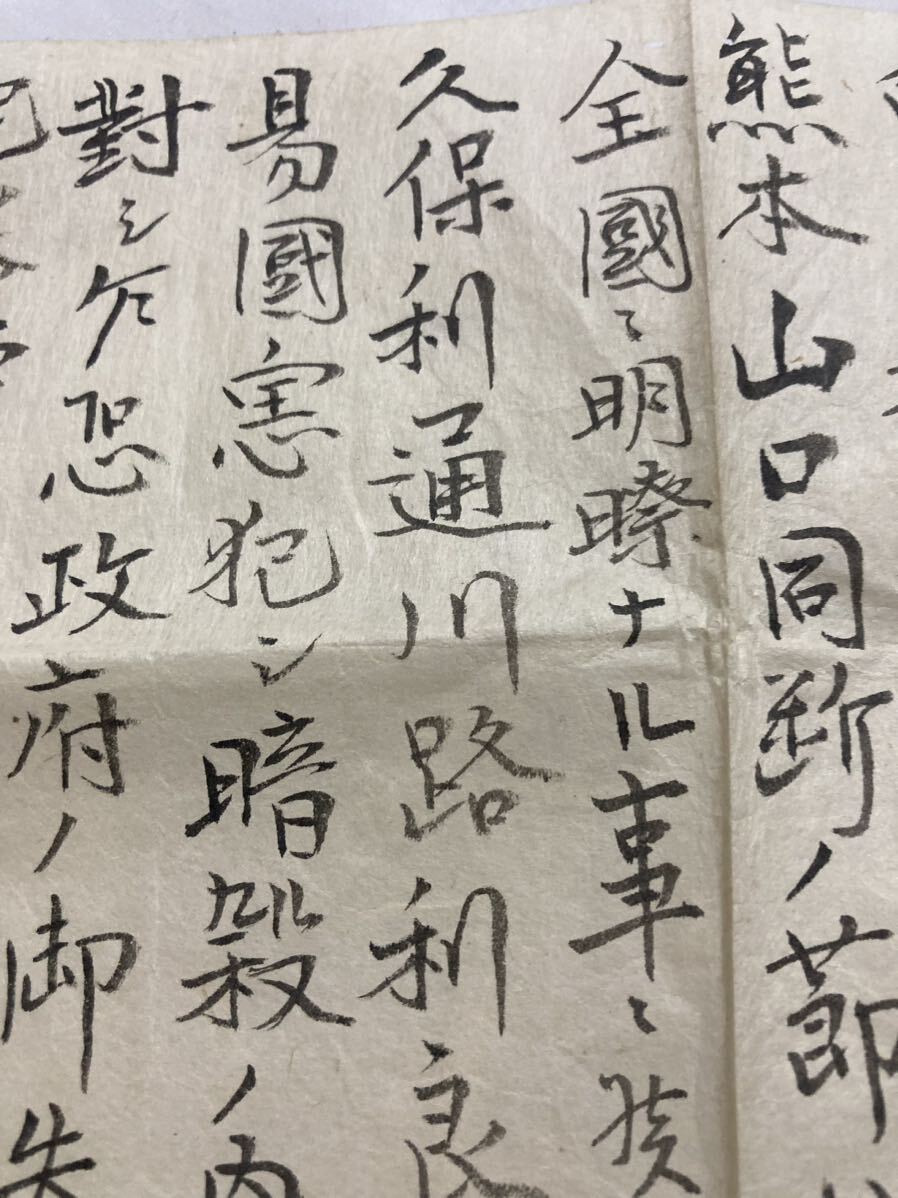 熊本山口同断ノ節
全國ニ明瞭ナル事ニ候
久保利通川路利良
易國憲犯シ暗殺ノ内
對シ乍恐政府ノ御失